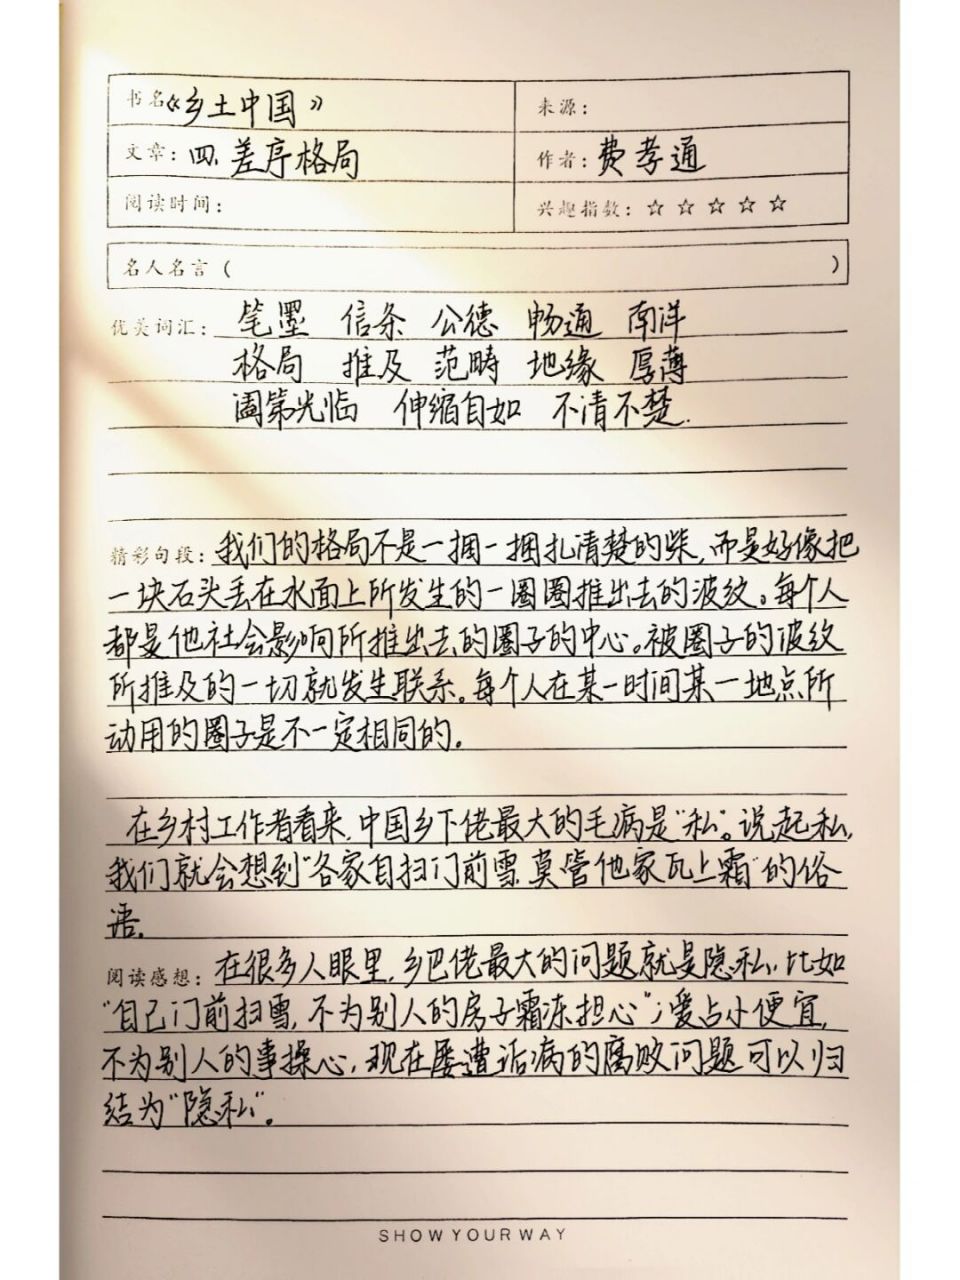 书名《乡土中国》 来源：
文章：四、差序格局 作者：费孝通
阅读时间： 兴趣指数：☆☆☆☆☆
名人名言（ ）
优美词汇：笔墨 信条 公德 畅通 南洋
格局 推及 范畴 地缘 厚薄
阖第光临 伸缩自如 不清不楚.
精彩句段：我们的格局不是一捆一捆扎清楚的柴,而是好像把
一块石头丢在水面上所发生的一圈圈推出去的波纹。每个人
都是他社会影响所推出去的圈子的中心。被圈子的波纹
所推及的一切就发生联系。每个人在某一时间某一地点所
动用的圈子是不一定相同的。
在乡村工作者看来,中国乡下佬最大的毛病是"私"。说起私,
我们就会想到"各家自扫门前雪,莫管他家瓦上霜"的俗
语。
阅读感想：在很多人眼里,乡巴佬最大的问题就是隐私,比如
"自己门前扫雪,不为别人的房子霜冻担心";爱占小便宜,
不为别人的事操心,现在屡遭诟病的腐败问题可以归
结为"隐私"。
SHOW YOUR WAY